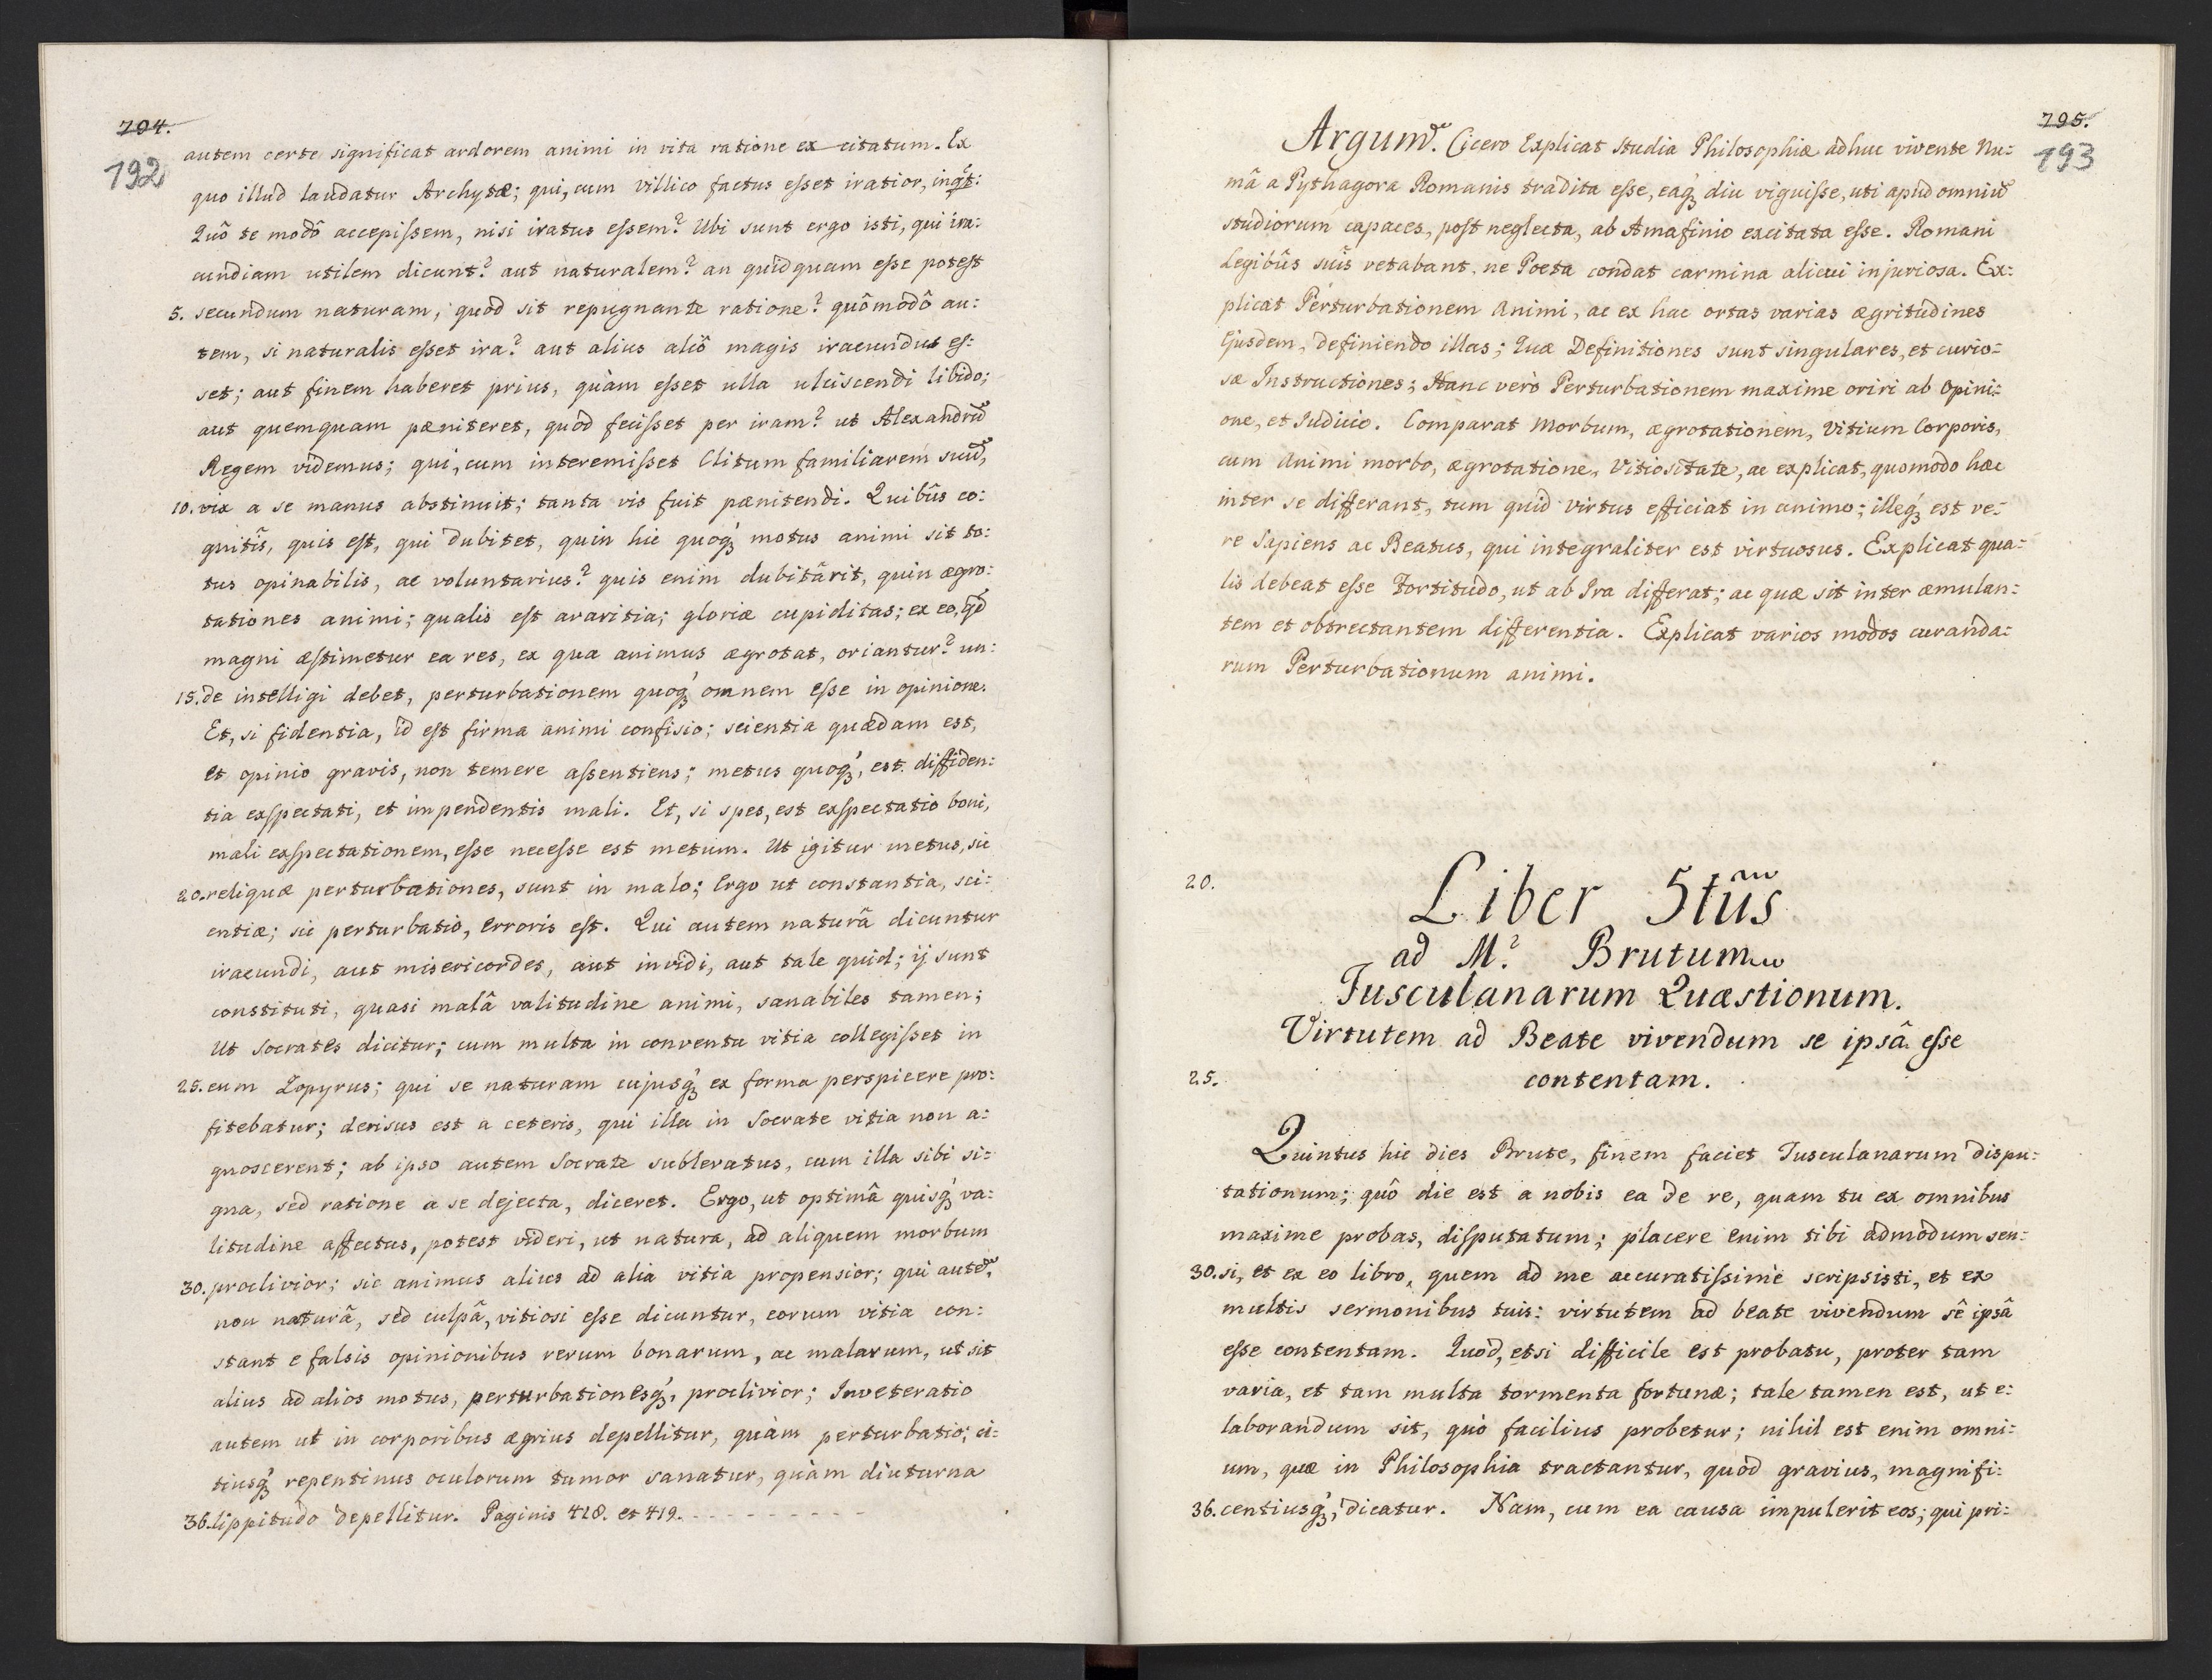 704.
192
autem certe significat ardorem animi in vita ratione ex citatum. Ex
quo illud laudatur Archytæ; qui, cum villico factus esset iratior, inqt:
Quô te modô accepissem, nisi iratus essem? Ubi sunt ergo isti, qui ira:
cundiam utilem dicunt? aut naturalem? an quidquam esse potest
5. secundum naturam, quod sit repugnante ratione? quômodô au:
tem, si naturalis esset ira? aut alius aliô magis iracundus es:
set; aut finem haberet prius, quàm esset ulla ulciscendi libido;
aut quemquam pæniteret, quòd fecisset per iram? ut Alexandrū
Regem videmus; qui, cum interemisset Clitum familiarem suū,
10. vix a se manus abstinuit; tanta vis fuit pænitendi. Quibûs co:
gnitîs, quis est, qui dubitet, quin hic quoq́ʒ motus animi sit to:
tus opinabilis, ac voluntarius? quis enim dubitârit, quin ægro:
tationes animi; qualis est avaritia; gloriæ cupiditas; ex eo, qd
magni æstimetur ea res, ex qua animus ægrotat, oriantur? un:
15. de intelligi debet, perturbationem quoq́ʒ omnem esse in opinione.
Et, si fidentia, id est firma animi confisio; scientia quædam est,
et opinio gravis, non temere assentiens; metus quoq́ʒ, est diffiden:
tia exspectati, et impendentis mali. Et, si spes, est exspectatio boni,
mali exspectationem, esse necesse est metum. Ut igitur metus, sic
20. reliquæ perturbationes, sunt in malo; Ergo ut constantia, sci:
entiæ; sic perturbatio, erroris est. Qui autem naturâ dicuntur
iracundi, aut misericordes, aut invidi, aut tale quid; ij sunt
constituti, quasi malâ valitudine animi, sanabiles tamen;
Ut Socrates dicitur; cum multa in conventu vitia collegisset in
25. eum Zopyrus; qui se naturam cujusq́ʒ ex forma perspicere pro:
fitebatur; derisus est a ceteris, qui illa in Socrate vitia non a:
gnoscerent; ab ipso autem Socrate sublevatus, cum illa sibi si:
gna, sed ratione a se dejecta, diceret. Ergo, ut optimâ quisq́ʒ va:
litudine affectus, potest videri, ut natura, ad aliquem morbum
30. proclivior; sic animus alius ad alia vitia propensior; qui autē,
non naturâ, sed culpâ, vitiosi esse dicuntur, eorum vitia con:
stant e falsis opinionibus rerum bonarum, ac malarum, ut sit
alius ad alios motus, perturbationesq́ʒ, proclivior; Inveteratio
autem ut in corporibus ægrius depellitur, quàm perturbatio; ci:
tiusq́ʒ repentinus oculorum tumor sanatur, quàm diuturna
36. lippitudo depellitur. Paginis 418. et 419. - - - - - - - - - -
705.
193
Argumē. Cicero Explicat studia Philosophiæ adhuc vivente Nu:
mâ a Pythagora Romanis tradita esse, eaq́ʒ diu viguisse, uti apud omniū
studiorum capaces, post neglecta, ab Amafinio excitata esse. Romani
Legibûs suîs vetabant, ne Poeta condat carmina alicui injuriosa. Ex:
plicat Perturbationem Animi, ac ex hac ortas varias ægritudines
Ejusdem, definiendo illas; Quæ Definitiones sunt singulares, et curio:
sæ Instructiones; Hanc verò Perturbationem maxime oriri ab Opini:
one, et Judicio. Comparat Morbum, ægrotationem, Vitium Corporis,
cum Animi morbo, ægrotatione, Vitiositate, ac explicat, quomodo hæc
inter se differant, tum quid Virtus efficiat in animo; illeq́ʒ est ve:
re Sapiens ac Beatus, qui integraliter est virtuosus. Explicat qua:
lis debeat esse Fortitudo, ut ab Ira differat; ac quæ sit inter æmulan:
tem et obtrectantem differentia. Explicat varios modos curanda:
rum Perturbationum animi.
20. Liber 5tûs
ad M. Brutum
Tusculanarum Quæstionum.
Virtutem ad Beate vivendum se ipsâ esse
25. contentam.
Quintus hic dies Brute, finem faciet Tusculanarum dispu:
tationum; quô die est a nobis ea de re, quam tu ex omnibus
maxime probas, disputatum; placere enim tibi admodum sen:
30. si, et ex eo libro, quem ad me accuratissime scripsisti, et ex
multis sermonibus tuis: virtutem ad beate vivendum sê ipsâ
esse contentam. Quod, etsi difficile est probatu, proter tam
varia, et tam multa tormenta fortunæ; tale tamen est, ut e:
laborandum sit, quò facilius probetur; nihil est enim omni:
um, quæ in Philosophia tractantur, quod gravius, magnifi:
36. centiusq́ʒ, dicatur. Nam, cum ea causa impulerit eos; qui pri: